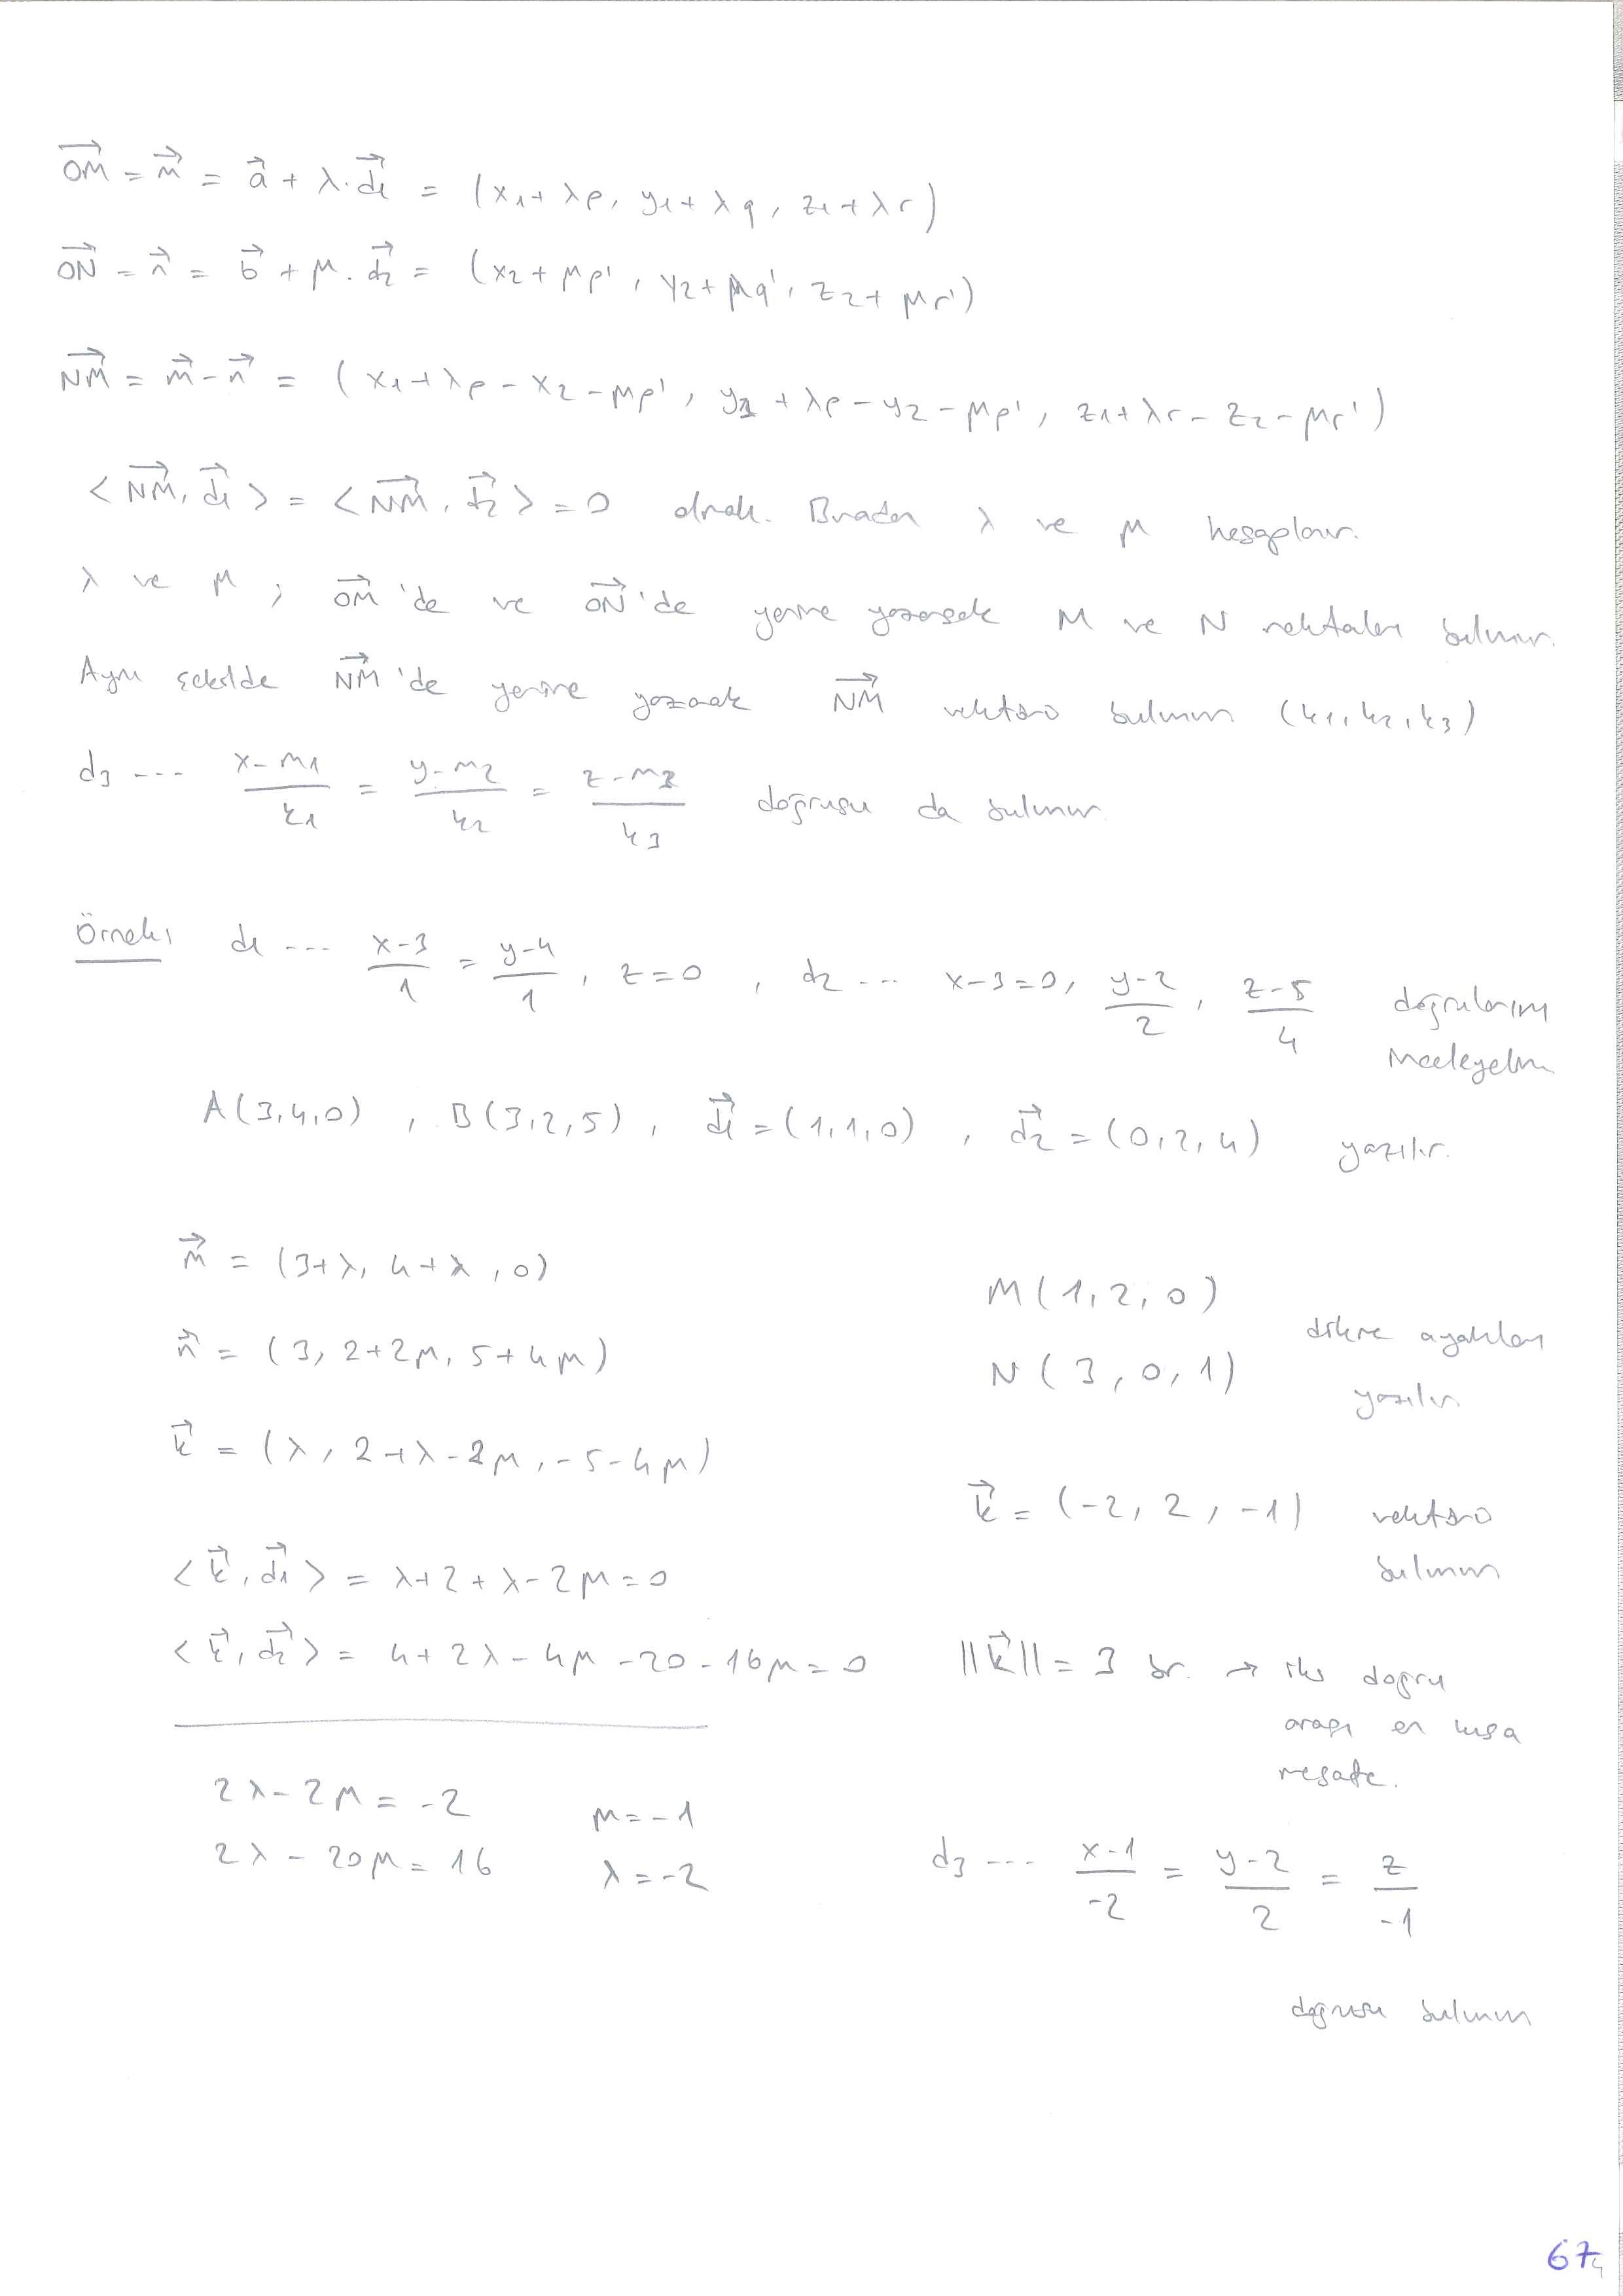 OM⃗ = m⃗ = a⃗ + λ.d₁⃗ = (x₁+λp, y₁+λq, z₁+λr)
ON⃗ = n⃗ = b⃗ + μ.d₂⃗ = (x₂+μp', y₂+μq', z₂+μr')
NM⃗ = m⃗-n⃗ = (x₁+λp-x₂-μp', y₁+λp-y₂-μp', z₁+λr-z₂-μr')
<NM⃗, d₁⃗> = <NM⃗, d₂⃗> = 0 olmalı. Buradan λ ve μ hesaplanır.
λ ve μ; OM⃗'de ve ON⃗'de yerine yazarsak M ve N noktaları bulunur.
Aynı şekilde NM⃗'de yerine yazarak NM⃗ vektörü bulunur (k₁,k₂,k₃)
d₃ --- (x-m₁)/k₁ = (y-m₂)/k₂ = (z-m₃)/k₃ doğrusu da bulunur.
Örnek: d₁ --- (x-3)/1 = (y-4)/1, z=0, d₂ --- x-3=0, (y-2)/2, (z-5)/4 doğrularını
inceleyelim
A(3,4,0), B(3,2,5), d₁⃗=(1,1,0), d₂⃗=(0,2,4) yazılır.
m⃗ = (3+λ, 4+λ, 0)
n⃗ = (3, 2+2μ, 5+4μ)
k⃗ = (λ, 2+λ-2μ, -5-4μ)
<k⃗, d₁⃗> = λ+2+λ-2μ=0
<k⃗, d₂⃗> = 4+2λ-4μ-20-16μ=0
2λ-2μ=-2
2λ-20μ=16
μ=-1
λ=-2
M(1,2,0)
N(3,0,1)
dikme ayakları
yazılır.
k⃗ = (-2, 2, -1) vektörü
bulunur
||k⃗|| = 3 br. → iki doğru
arası en kısa
mesafe.
d₃ --- (x-1)/-2 = (y-2)/2 = z/-1
doğrusu bulunur
67